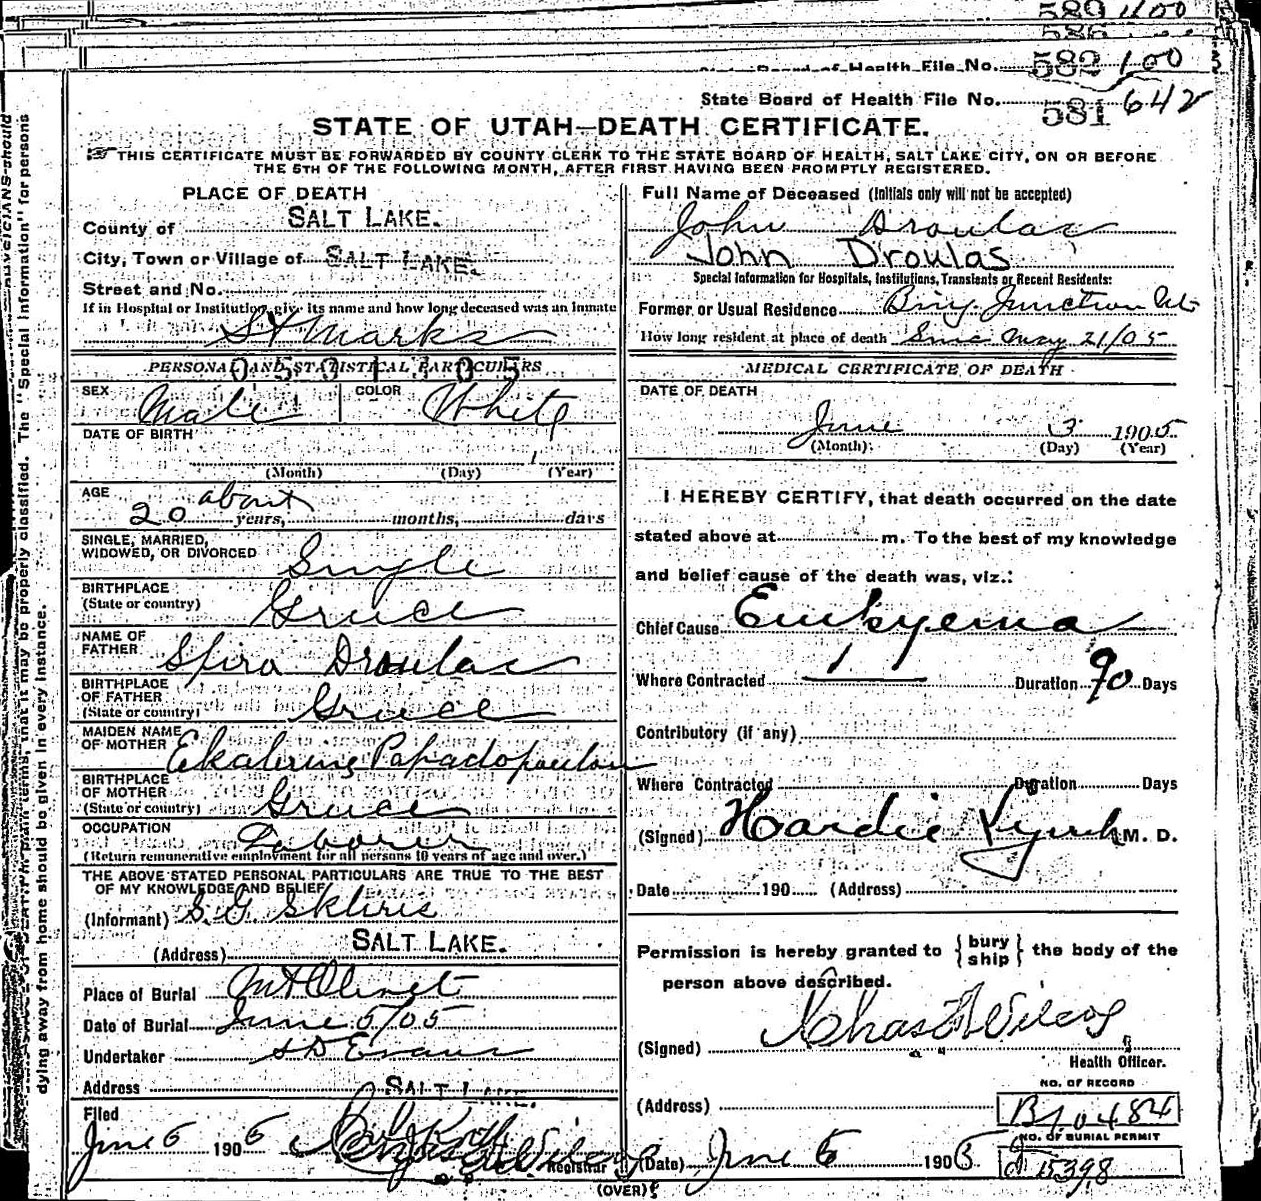 589 100
586
State Board of Health File No. 582 100
State Board of Health File No. 581 642
STATE OF UTAH—DEATH CERTIFICATE.
THIS CERTIFICATE MUST BE FORWARDED BY COUNTY CLERK TO THE STATE BOARD OF HEALTH, SALT LAKE CITY, ON OR BEFORE
THE 5TH OF THE FOLLOWING MONTH, AFTER FIRST HAVING BEEN PROMPTLY REGISTERED.
PLACE OF DEATH
County of SALT LAKE.
City, Town or Village of SALT LAKE.
Street and No.
If in Hospital or Institution, give its name and how long deceased was an inmate
St Marks
PERSONAL AND STATISTICAL PARTICULARS
0501105
SEX Male COLOR White
DATE OF BIRTH
(Month) (Day) (Year)
AGE about
20 years, months, days
SINGLE, MARRIED,
WIDOWED, OR DIVORCED Single
BIRTHPLACE
(State or country) Greece
NAME OF
FATHER Spiro Droulas
BIRTHPLACE
OF FATHER
(State or country) Greece
MAIDEN NAME
OF MOTHER Ekaterina Papadopoulou
BIRTHPLACE
OF MOTHER
(State or country) Greece
OCCUPATION Laborer
(Return remunerative employment for all persons 10 years of age and over.)
THE ABOVE STATED PERSONAL PARTICULARS ARE TRUE TO THE BEST
OF MY KNOWLEDGE AND BELIEF
(Informant) S.G. Skliris
(Address) SALT LAKE.
Place of Burial Mt Olivet
Date of Burial June 5/05
Undertaker S D Evans
Address SALT LAKE.
Filed
June 6 1905
Registrar
Full Name of Deceased (Initials only will not be accepted)
John Droulas
John Droulas
Special Information for Hospitals, Institutions, Transients or Recent Residents:
Former or Usual Residence Bing. Junction Ut
How long resident at place of death Since May 21/05
MEDICAL CERTIFICATE OF DEATH
DATE OF DEATH
June 3 1905
(Month) (Day) (Year)
I HEREBY CERTIFY, that death occurred on the date
stated above at m. To the best of my knowledge
and belief cause of the death was, viz.:
Chief Cause Empyema
Where Contracted Duration 90 Days
Contributory (if any)
Where Contracted Duration Days
(Signed) Hardie Lynch M. D.
Date 190 (Address)
Permission is hereby granted to { bury ship } the body of the
person above described.
(Signed) Chas Wilcox
Health Officer.
(Address)
NO. OF RECORD
B10484
NO. OF BURIAL PERMIT
(Date) June 6 1905
(OVER)
dying away from home should be given in every instance.